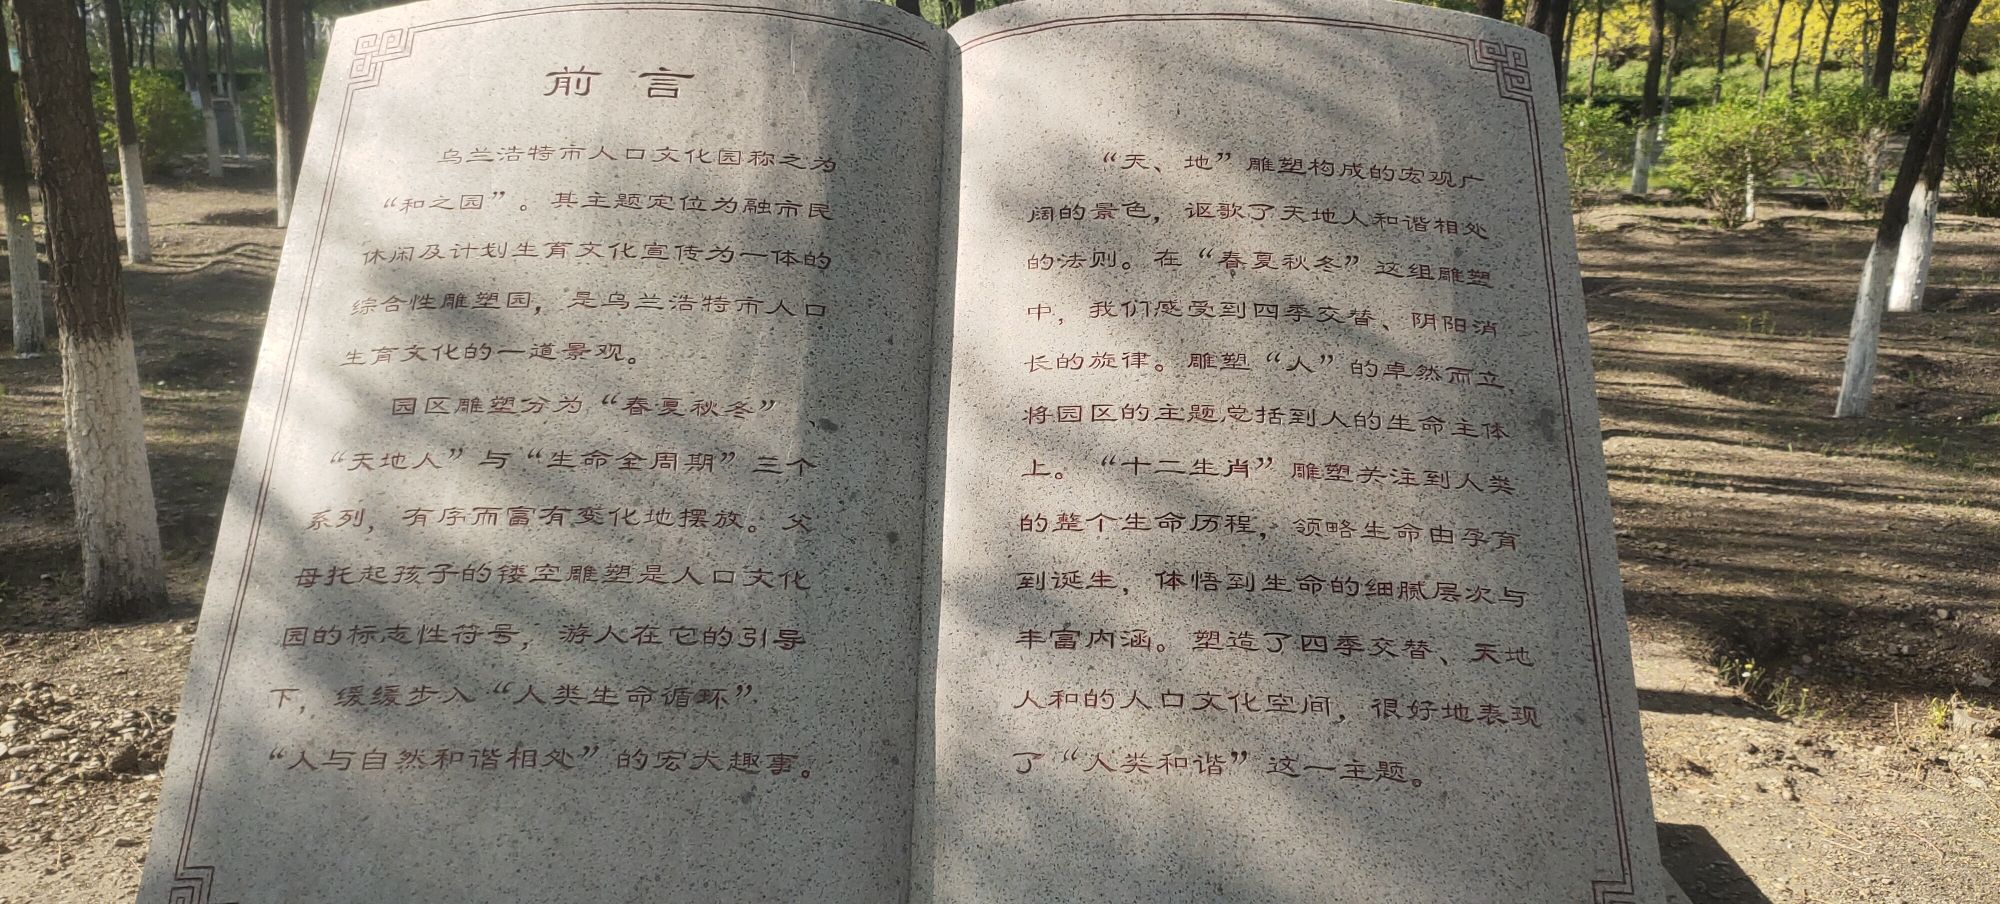 前言
乌兰浩特市人口文化园称之为
“和之园”。其主题定位为融市民
休闲及计划生育文化宣传为一体的
综合性雕塑园，是乌兰浩特市人口
生育文化的一道景观。
园区雕塑分为“春夏秋冬”、
“天地人”与“生命全周期”三个
系列，有序而富有变化地摆放。父
母托起孩子的镂空雕塑是人口文化
园的标志性符号，游人在它的引导
下，缓缓步入“人类生命循环”
“人与自然和谐相处”的宏大趣事。
“天、地”雕塑构成的宏观广
阔的景色，讴歌了天地人和谐相处
的法则。在“春夏秋冬”这组雕塑
中，我们感受到四季交替、阴阳消
长的旋律。雕塑“人”的卓然而立
将园区的主题总括到人的生命主体
上。“十二生肖”雕塑关注到人类
的整个生命历程，领略生命由孕育
到诞生，体悟到生命的细腻层次与
丰富内涵。塑造了四季交替、天地
人和的人口文化空间，很好地表现
了“人类和谐”这一主题。